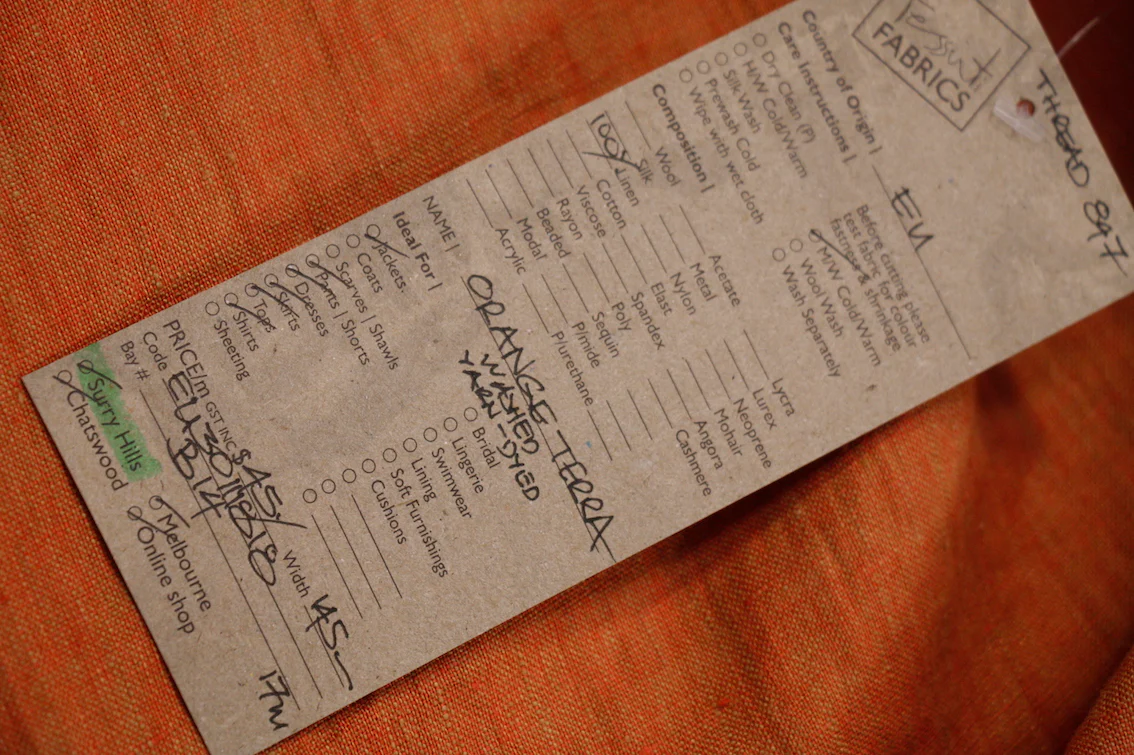 THREAD 897
Tessuti
FABRICS
Country of Origin | EU
Care Instructions |
Dry Clean (P)
H/W Cold/Warm
Silk Wash
Prewash Cold
Wipe with wet cloth
Before cutting please
test fabric for colour
fastness & shrinkage
M/W Cold/Warm
Wool Wash
Wash Separately
Composition |
Wool
Silk
100% Linen
Cotton
Viscose
Rayon
Beaded
Modal
Acrylic
Acetate
Metal
Nylon
Elast
Spandex
Poly
Sequin
P/mide
P/urethane
Lycra
Lurex
Neoprene
Mohair
Angora
Cashmere
NAME | ORANGE TERRA
WASHED
YARN-DYED
Ideal For |
Jackets
Coats
Scarves | Shawls
Pants | Shorts
Dresses
Skirts
Tops
Shirts
Sheeting
Bridal
Lingerie
Swimwear
Lining
Soft Furnishings
Cushions
PRICE/m GST INC $45/ Width 145
Code
Bay # B14
17m
Surry Hills
Chatswood
Melbourne
Online shop